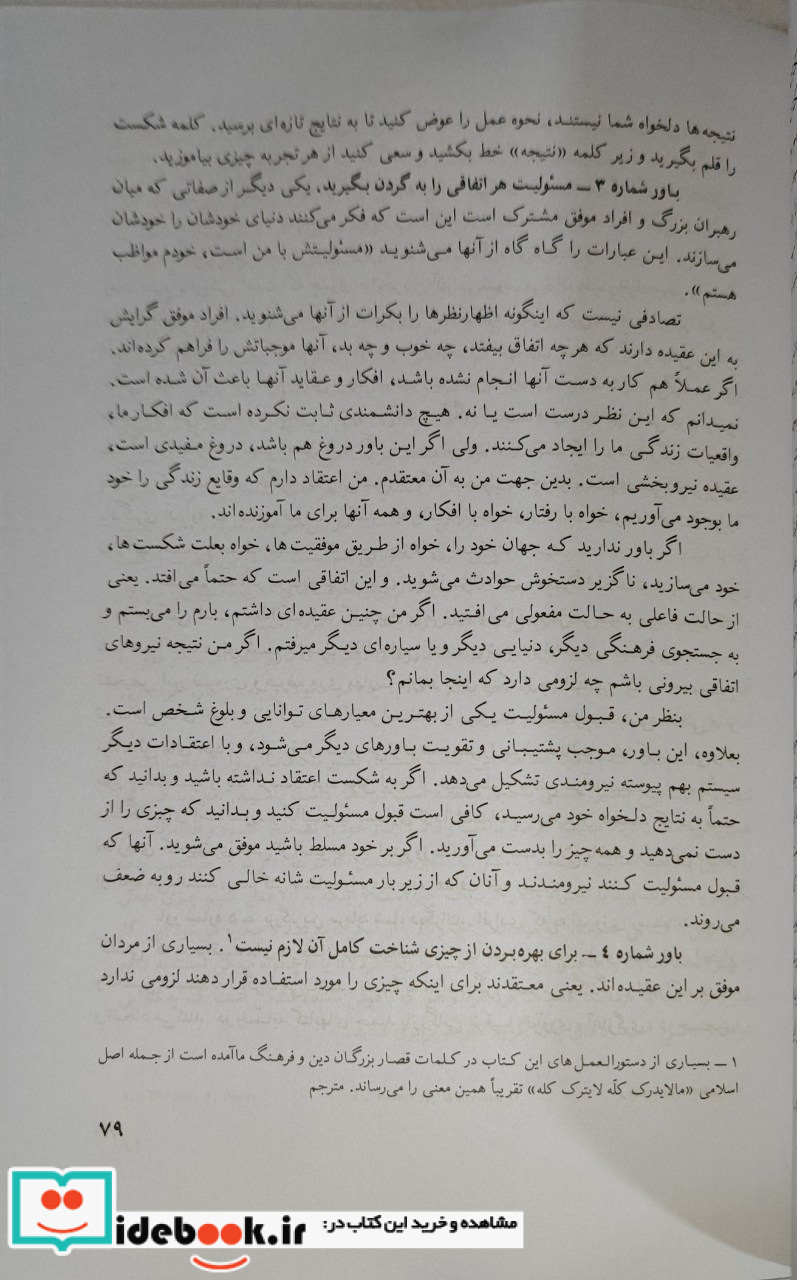 نتیجه‌ها دلخواه شما نیستند، نحوه عمل را عوض کنید تا به نتایج تازه‌ای برسید. کلمه شکست
را قلم بگیرید و زیر کلمه «نتیجه» خط بکشید و سعی کنید از هر تجربه چیزی بیاموزید.
باور شماره ۳ ــ مسئولیت هر اتفاقی را به گردن بگیرید. یکی دیگر از صفاتی که میان
رهبران بزرگ و افراد موفق مشترک است این است که فکر می‌کنند دنیای خودشان را خودشان
می‌سازند. این عبارات را گاه گاه از آنها می‌شنوید «مسئولیتش با من است، خودم مواظب
هستم».
تصادفی نیست که اینگونه اظهارنظرها را بکرات از آنها می‌شنوید. افراد موفق گرایش
به این عقیده دارند که هر چه اتفاق بیفتد، چه خوب و چه بد، آنها موجباتش را فراهم کرده‌اند.
اگر عملاً هم کار به دست آنها انجام نشده باشد، افکار و عقاید آنها باعث آن شده است.
نمیدانم که این نظر درست است یا نه. هیچ دانشمندی ثابت نکرده است که افکار ما،
واقعیات زندگی ما را ایجاد می‌کنند. ولی اگر این باور دروغ هم باشد، دروغ مفیدی است،
عقیده نیروبخشی است. بدین جهت من به آن معتقدم. من اعتقاد دارم که وقایع زندگی را خود
ما بوجود می‌آوریم، خواه با رفتار، خواه با افکار، و همه آنها برای ما آموزنده‌اند.
اگر باور ندارید که جهان خود را، خواه از طریق موفقیت‌ها، خواه بعلت شکست‌ها،
خود می‌سازید، ناگزیر دستخوش حوادث می‌شوید. و این اتفاقی است که حتماً می‌افتد. یعنی
از حالت فاعلی به حالت مفعولی می‌افتید. اگر من چنین عقیده‌ای داشتم، بارم را می‌بستم و
به جستجوی فرهنگی دیگر، دنیایی دیگر و یا سیاره‌ای دیگر میرفتم. اگر من نتیجه نیروهای
اتفاقی بیرونی باشم چه لزومی دارد که اینجا بمانم؟
بنظر من، قبول مسئولیت یکی از بهترین معیارهای توانایی و بلوغ شخص است.
بعلاوه، این باور، موجب پشتیبانی و تقویت باورهای دیگر می‌شود، و با اعتقادات دیگر
سیستم بهم پیوسته نیرومندی تشکیل می‌دهد. اگر به شکست اعتقاد نداشته باشید و بدانید که
حتماً به نتایج دلخواه خود می‌رسید، کافی است قبول مسئولیت کنید و بدانید که چیزی را از
دست نمی‌دهید و همه چیز را بدست می‌آورید. اگر بر خود مسلط باشید موفق می‌شوید. آنها که
قبول مسئولیت کنند نیرومندند و آنان که از زیر بار مسئولیت شانه خالی کنند رو به ضعف
می‌روند.
باور شماره ٤ ــ برای بهره‌بردن از چیزی شناخت کامل آن لازم نیست¹. بسیاری از مردان
موفق بر این عقیده‌اند. یعنی معتقدند برای اینکه چیزی را مورد استفاده قرار دهند لزومی ندارد
۱ ــ بسیاری از دستورالعمل‌های این کتاب در کلمات قصار بزرگان دین و فرهنگ ما آمده است از جمله اصل
اسلامی «مالایدرک کلّه لایترک کله» تقریباً همین معنی را می‌رساند. مترجم
۷۹
مشاهده و خرید این کتاب در:
idebook.ir